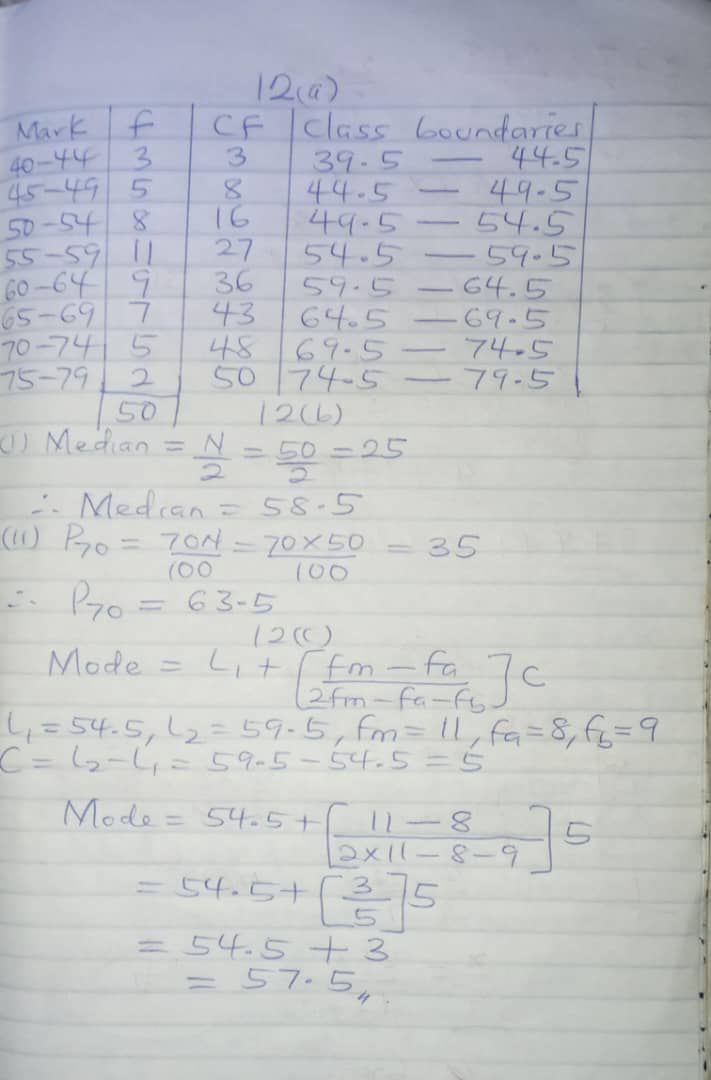 12(a)
Mark f CF Class boundaries
40-44 3 3 39.5 — 44.5
45-49 5 8 44.5 — 49.5
50-54 8 16 49.5 — 54.5
55-59 11 27 54.5 — 59.5
60-64 9 36 59.5 — 64.5
65-69 7 43 64.5 — 69.5
70-74 5 48 69.5 — 74.5
75-79 2 50 74.5 — 79.5
50 12(b)
(i) Median = N/2 = 50/2 = 25
∴ Median = 58.5
(ii) P₇₀ = 70N/100 = 70×50/100 = 35
∴ P₇₀ = 63.5
12(c)
Mode = L₁ + [fm - fa / 2fm - fa - fb] C
L₁ = 54.5, L₂ = 59.5, fm = 11, fa = 8, fb = 9
C = L₂ - L₁ = 59.5 - 54.5 = 5
Mode = 54.5 + [11 - 8 / 2×11 - 8 - 9] 5
= 54.5 + [3/5] 5
= 54.5 + 3
= 57.5,,